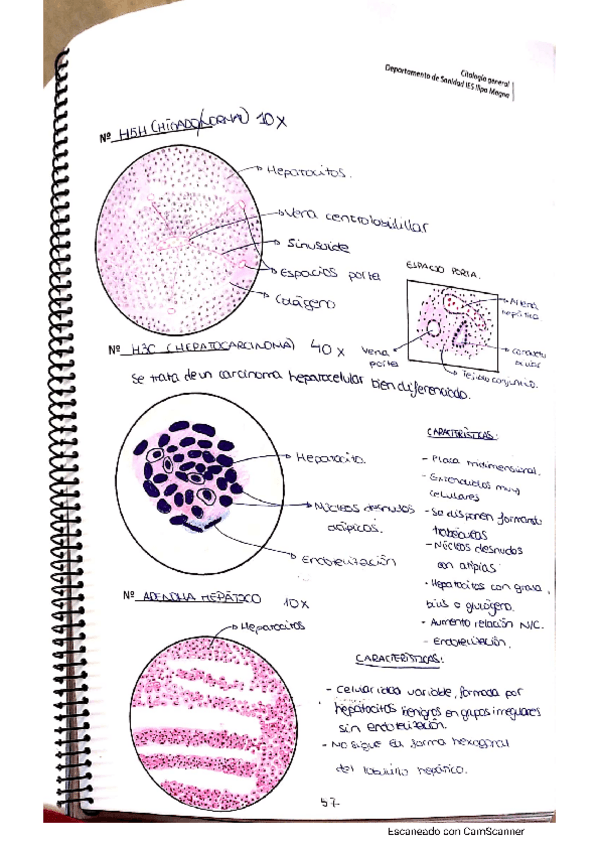 Citología general
Departamento de Sanidad IES Ilipa Magna
Nº H5H (HÍGADO NORMAL) 10x
Hepatocitos.
Vena centrolobulillar
Sinusoide
Espacios porta
Colágeno
ESPACIO PORTA.
Arteria
hepática
Conducto
biliar
Tejido conjuntivo.
Vena
porta
Nº H3C (HEPATOCARCINOMA) 40x
Se trata de un carcinoma hepatocelular bien diferenciado.
Hepatocito.
Núcleos desnudos
atípicos.
Endotelización
CARACTERÍSTICAS:
- Placa tridimensional.
- Extendidos muy
celulares
- Se disponen formando
trabéculas
- Núcleos desnudos
con atipias
- Hepatocitos con grasa,
bilis o glucógeno.
- Aumento relación N/C.
- Endotelización.
Nº ADENOMA HEPÁTICO 10x
Hepatocitos
CARACTERÍSTICAS:
- Celularidad variable, formada por
hepatocitos benignos en grupos irregulares
sin endotelización.
- No sigue la forma hexagonal
del lobulillo hepático.
57
Escaneado con CamScanner